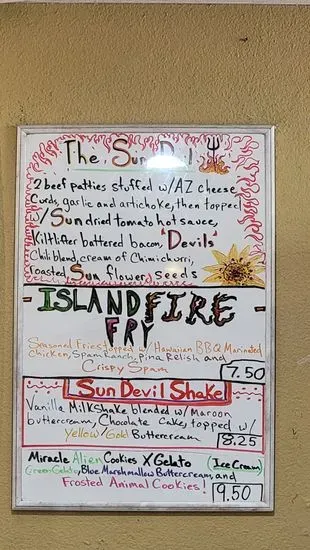 The Sun Devil
2 beef patties stuffed w/AZ cheese
Curds, garlic and artichoke, then topped
w/Sun dried tomato hot sauce,
Kiltlifter battered bacon, "Devils"
Chili blend, cream of Chimichurri,
roasted Sun flower seeds
-ISLAND FIRE-
FRY
Seasoned Fries topped w/ Hawaiian BBQ Marinated
Chicken, Spam Ranch, Pina Relish and
Crispy Spam
7.50
Sun Devil Shake
Vanilla Milkshake blended w/ Maroon
buttercream, Chocolate Cake, topped w/
Yellow/Gold Buttercream
8.25
Miracle Alien Cookies X Gelato (Ice Cream)
Green Gelato, Blue Marshmallow Buttercream, and
Frosted Animal Cookies!
9.50